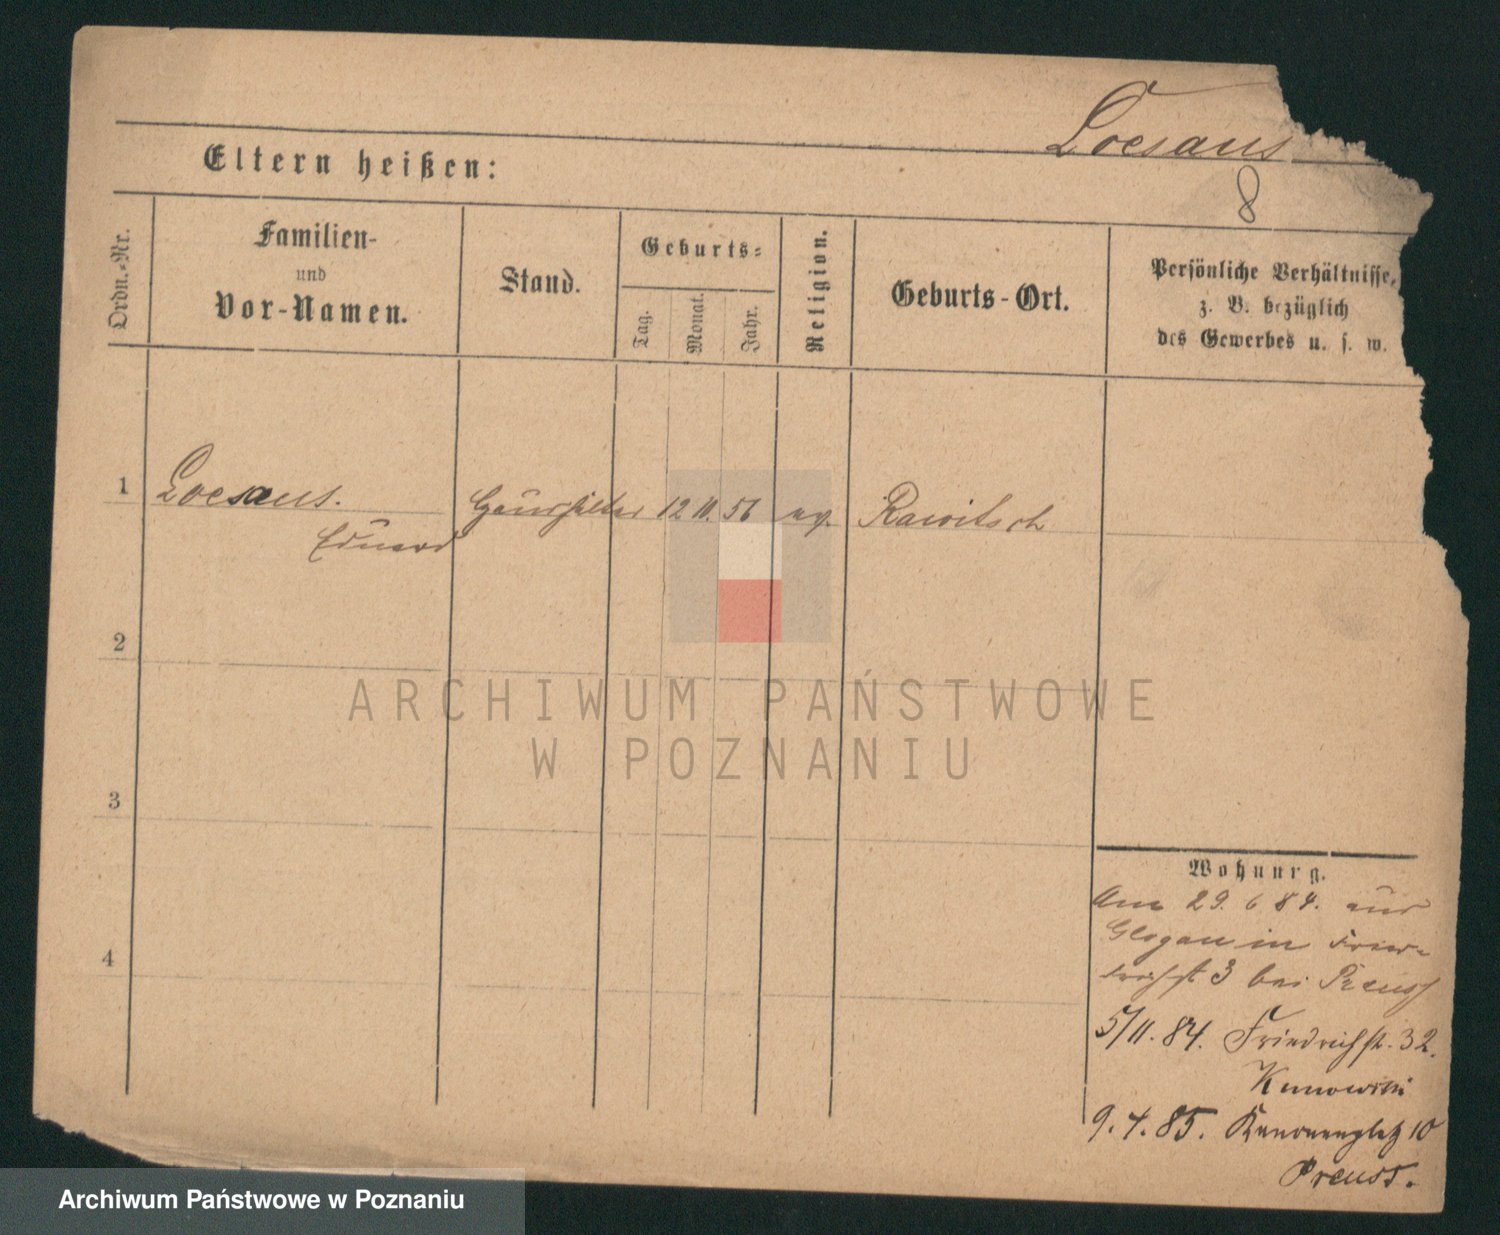 Loesaus
8
Eltern heißen:
Ordn.-Nr.
Familien-
und
Vor-Namen.
Stand.
Geburts-
Tag.
Monat.
Jahr.
Religion.
Geburts-Ort.
Persönliche Verhältnisse,
z. B. bezüglich
des Gewerbes u. s. w.
1 Loesaus. 12 11. 56 ev. Rawitsch
Eduard
2
ARCHIWUM PAŃSTWOWE
W POZNANIU
3
4
Wohnung.
Am 29. 6 84. aus
Glogau in Fried-
richst 3 bei Preuss
5/11. 84. Friedrichst. 32.
Kunowski
9. 4. 85. Kanonenplatz 10
Preuss.
Archiwum Państwowe w Poznaniu